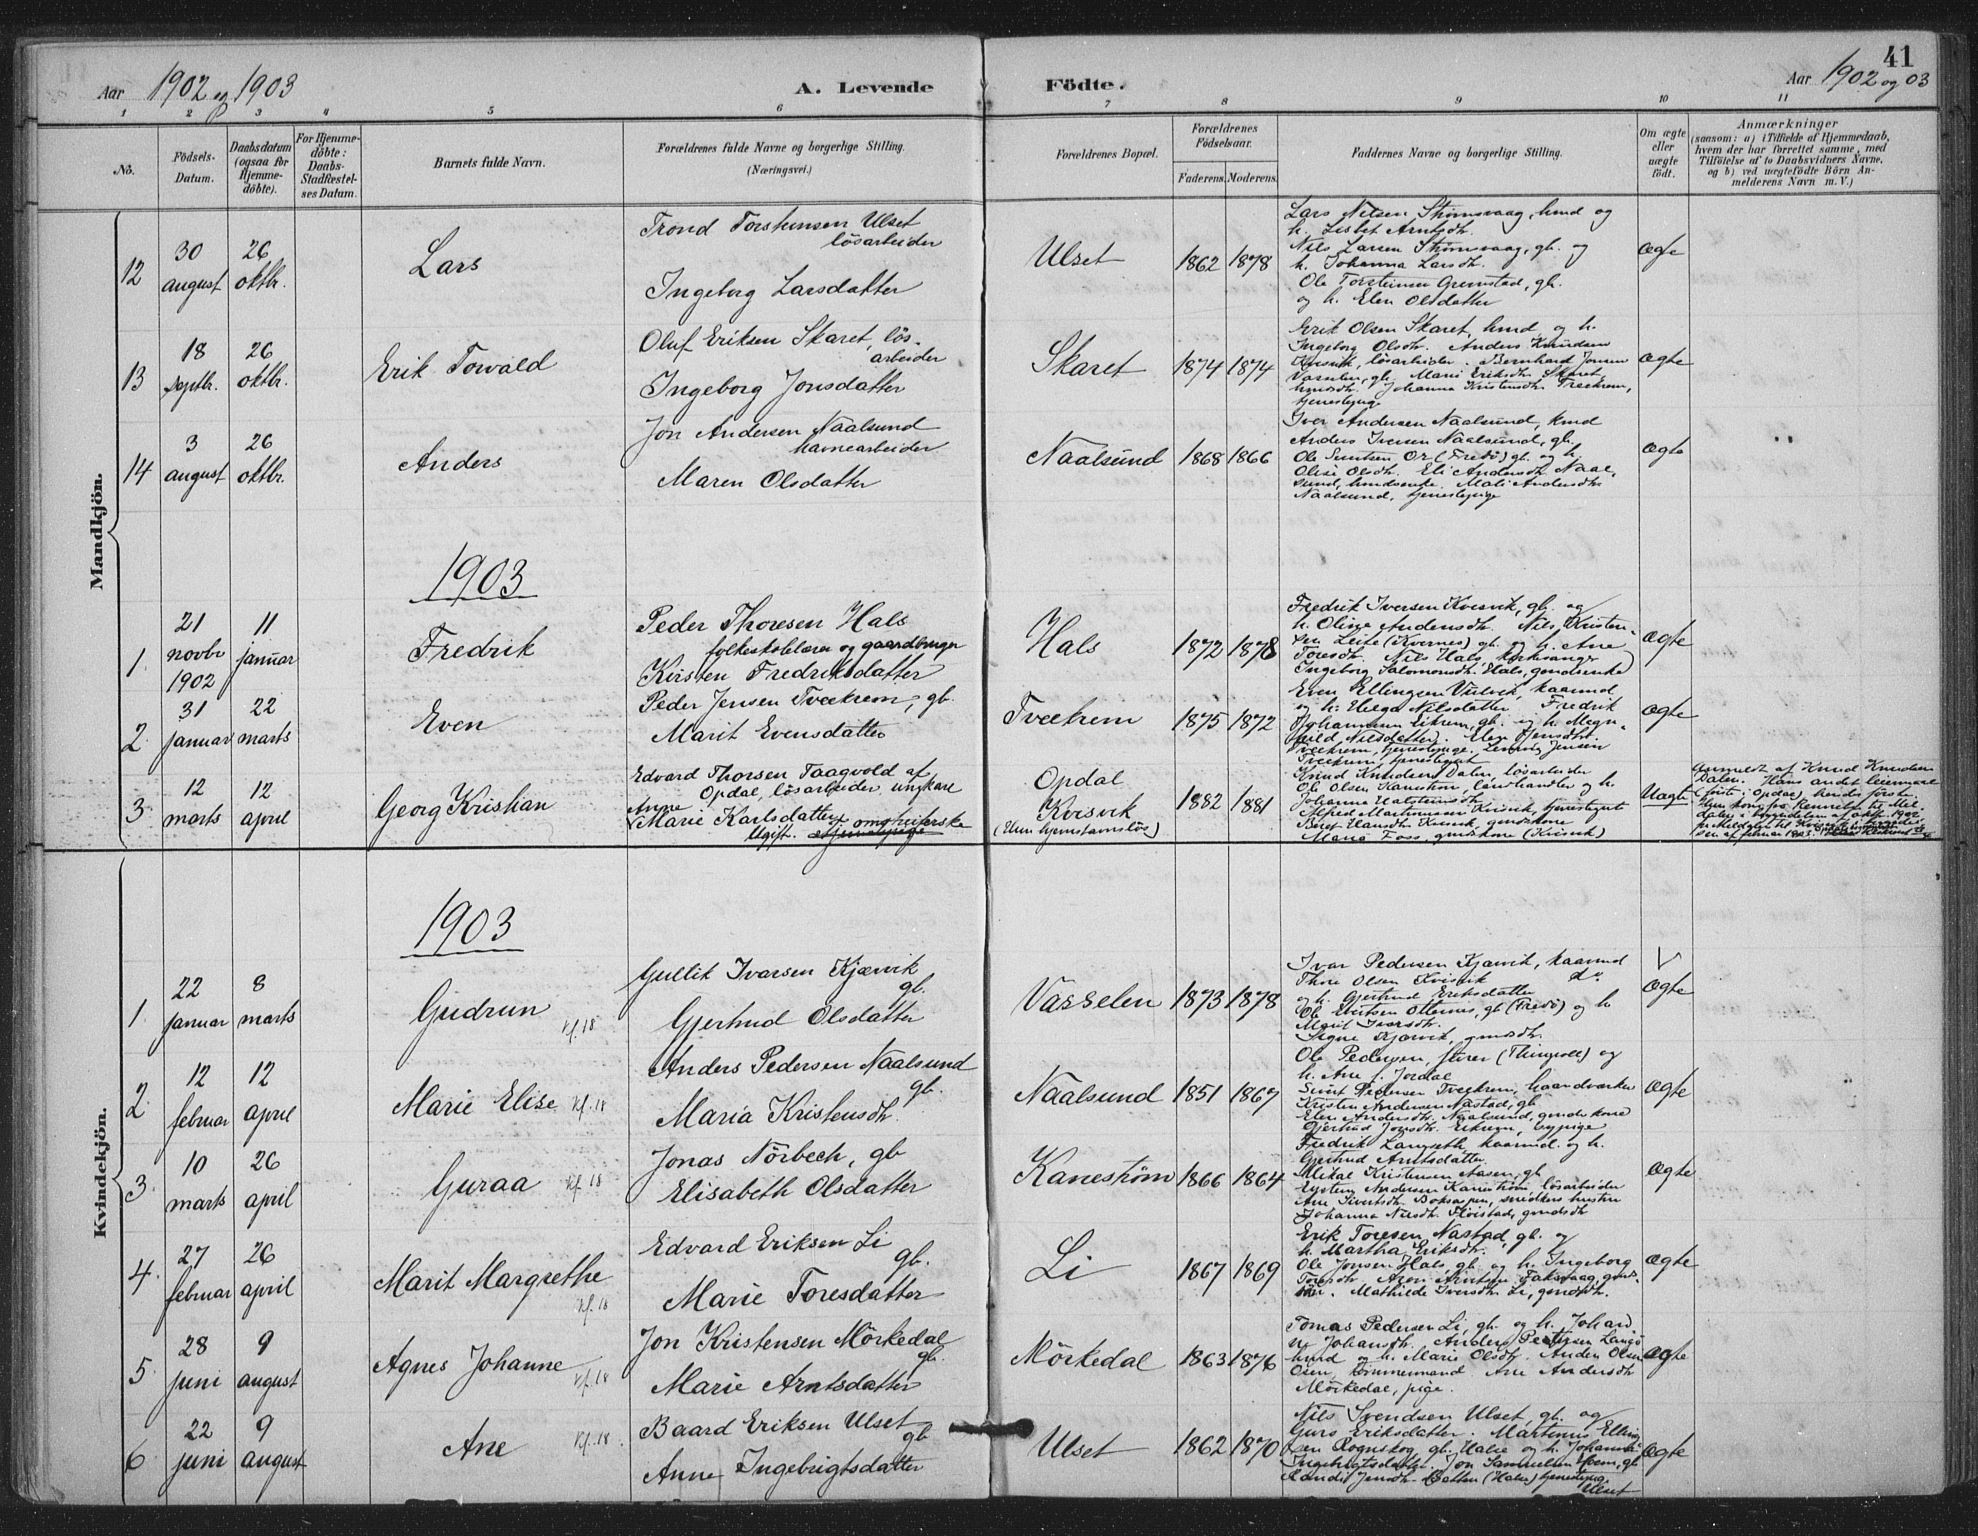 41
Aar 1902 og 1903
A. Levende Födte.
Aar 1902 og 03
1 2 3 4 5 6 7 8 9 10 11
No.
Födsels-Datum.
Daabsdatum (ogsaa for Hjemme-döbte).
For Hjemme-döbte: Daabs-Stadfæstel-ses Datum.
Barnets fulde Navn.
Forældrenes fulde Navne og borgerlige Stilling. (Næringsvei.)
Forældrenes Bopæl.
Forældrenes Födselsaar.
Faderens. Moderens.
Faddernes Navne og borgerlige Stilling.
Om ægte eller uægte födt.
Anmærkninger
(saasom: a) i Tilfælde af Hjemmedaab, hvem der har forrettet samme, med Tilföielse af to Daabsvidners Navne, og b) ved uægtefödte Börn An-melderens Navn m. V.)
Mandkjön.
12 30 august 26 oktbr. Lars
Trond Torstensen Ulset
lösarbeider
Ingeborg Larsdatter
Ulset 1862 1878
Lars Nilsen Strömsvaag, kmd og
h. Lisbet Arntsdh.
Nils Larsen Strömsvaag, gb. og
h. Johanna Larsdh.
Ole Torstensen Gremstad, gb.
og h. Elen Olsdatter
Ægte
13 18 septbr. 26 oktbr. Erik Torvald
Oluf Eriksen Skaret, lös-
arbeider
Ingeborg Jonsdatter
Skaret 1874 1874
Erik Olsen Skaret, kmd og h.
Ingeborg Olsdh. Anders Knudsen
Kvisvik, lösarbeider. Bernhard Jonsen
Vasselen, gb. Marie Eriksdh. Skaret,
kmdsdh. Johanna Kristensdh. Tveekrem,
tjenestepige
Ægte
14 3 august 26 oktbr. Anders
Jon Andersen Naalsund
havnearbeider
Maren Olsdatter
Naalsund 1868 1866
Iver Andersen Naalsund, kmd
Anders Iversen Naalsund, gb.
Ole Sivertsen Or (Fredö) gb. og h.
Olise Olsdh. Eli Andersdh. Naal-
sund, kmdsenke. Mali Andersdh.
Naalsund, tjenestepige
Ægte
1903
1. 21 novbr 1902 11 januar Fredrik
Peder Thoresen Hals
folkeskolelærer og gaardbruger
Kirsten Fredriksdatter
Hals 1872 1878
Fredrik Iversen Kvisvik, gb. og
h. Olise Andersdh. Nils Kristen-
sen Leite (Kvernes) gb. og h. Ane
Toresdh. Nils Hals, kirkesanger
Ingeborg Salomonsdh. Hals, gmdsenke
Ægte
2. 31 januar 22 marts Even
Peder Jensen Tveekrem, gb.
Marit Evensdatter
Tveekrem 1875 1872
Even Ellingsen Vulvik, kaarmd
og h. Helga Nilsdatter. Fredrik
Johannesen Eikrem, gb. og h. Magn-
hild Nilsdatter. Elen Jensdh.
Tveekrem, tjenestepige. Jensen
Tveekrem, tjenestegut
Ægte
3. 12 marts 12 april Georg Kristian
Edvard Thorsen Taagvold af
Opdal, lösarbeider, ungkarl
Anne
Marie Karlsdatter, omstreiferske
Ugift. tjenestepige
Opdal
Kvisvik
(Elven hjemstavnslös)
1882 1881
Knud Knudsen Dalen, lösarbeider
Ole Olsen Kanestrøm, landhandler og h.
Johanna Halstensdh.
Alfred Martinusen Kvisvik, tjenestegut
Beret Hansdh. Kvisvik, gmdskone
Maria Foss, gmdskone (Kvisvik)
Uægte
Anmeldt af Knud Knudsen
Dalen. Hans andet leiermaal
(först i Opdal) hendes först.
Kvindekjön.
1903
1. 22 januar 8 marts Gudrun Kf. 18
Gullik Ivarsen Kjærvik
gb.
Gjertrud Olsdatter
Vasselen 1873 1878
Ivar Pedersen Kjærvik, kaarmd
Thore Olsen Kvisvik do
og h. Gjertrud Eriksdatter
Ole Evertsen Otternes, gb (Fredö) og h
Marit Ivarsdh.
Signe Kjærvik, gmdsdh.
V
Ægte
2. 12 februar 12 april Marie Elise Kf. 18
Anders Pedersen Naalsund
gb.
Maria Kristensdh.
Naalsund 1851 1867
Ole Pedersen, (Thingvold) og
h. Ane f. Jordal
Sivert Pedersen Tveekrem, haandverker
Kristen Andersen Nastad, gb
Elen Andersdh. Naalsund, gmdskone
Gjertrud Jonsdh. Eikrem, bypige
Ægte
3. 10 marts 26 april Guraa Kf. 18
Jonas Nörbech, gb
Elisabeth Olsdatter
Kanestrøm 1866 1864
Fredrik Langseth, kaarmd og h.
Gjertrud Arntsdatter
Mikal Kristensen Aasen, gb
Eystein Andersen Kanestrøm, lösarbeider
Ane Sivertsdh. Boksaspen, snedkers hustru
Johanna Nilsdh. Flöistad, gmdsdh
Ægte
4. 27 februar 26 april Marit Margrethe Kf. 18
Edvard Eriksen Li
gb.
Marie Toresdatter
Li 1867 1869
Erik Toresen Nastad, gb. og
h. Martha Eriksdh.
Ole Jonsen Hals, gb. og h. Ingeborg
Toresdh. Aren Arntsen Faksvaag, gmds-
sön. Mathilde Iversdh. Li, gmdsdh.
Ægte
5. 28 juni 9 august Agnes Johanne Kf. 18
Jon Kristensen Mörkedal
gb.
Marie Arntsdatter
Mörkedal 1863 1876
Tomas Pedersen Li, gb. og h. Johan-
ne Johansdh. Anders Pedersen Langö
kmd og h. Marie Olsdh. Anders Olsen
Osen, tömmermand. Ane Andersdh
Mörkedal, pige.
Ægte
6. 22 juni 9 august Ane Kf. 18
Baard Eriksen Ulset
gb
Anne Ingebrigtsdatter
Ulset 1862 1870
Nils Svendsen Ulset, gb. og
Guro Eriksdatter. Martinus Elling-
sen Rognskog, gb. Halse og h. Johanna
Ingebrigtsdatter. Jon Samuelsen Moen, gb
Randi Jensdh. Botten (Halse) tjenestepige
Ulset
Ægte